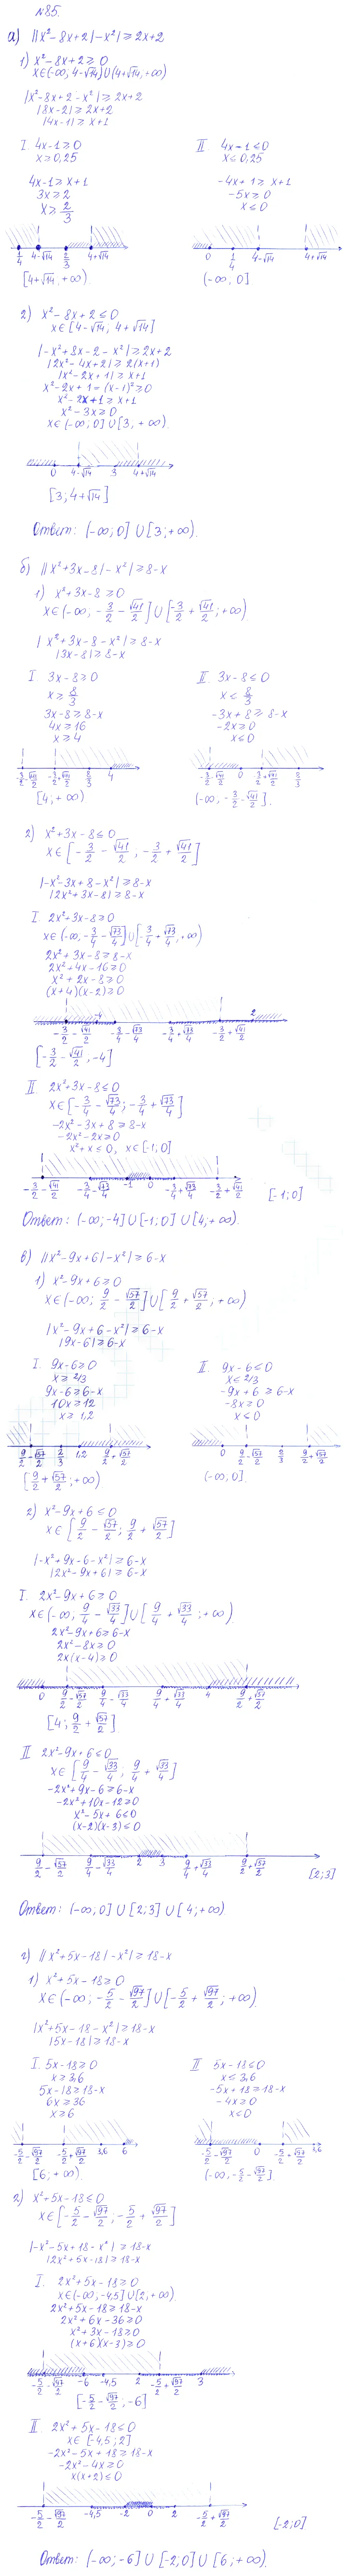 №85.
а) ||x²-8x+2|-x²|≥2x+2
1) x²-8x+2≥0
x∈(-∞; 4-√14)∪(4+√14; +∞)
|x²-8x+2-x²|≥2x+2
|8x-2|≥2x+2
|4x-1|≥x+1
I 4x-1≥0
x≥0,25
4x-1≥x+1
3x≥2
x≥2/3
1/4 4-√14 2/3 4+√14
[4+√14; +∞)
II 4x-1≤0
x≤0,25
-4x+1≥x+1
-5x≥0
x≤0
0 1/4 4-√14 4+√14
(-∞; 0]
2) x²-8x+2≤0
x∈[4-√14; 4+√14]
|-x²+8x-2-x²|≥2x+2
|2x²-4x+2|≥2(x+1)
|x²-2x+1|≥x+1
x²-2x+1=(x-1)²≥0
x²-2x+1≥x+1
x²-3x≥0
x∈(-∞; 0]∪[3; +∞).
0 4-√14 3 4+√14
[3; 4+√14]
Ответ: (-∞; 0]∪[3; +∞).
б) ||x²+3x-8|-x²|≥8-x
1) x²+3x-8≥0
x∈(-∞; -3/2-√41/2]∪[-3/2+√41/2; +∞)
|x²+3x-8-x²|≥8-x
|3x-8|≥8-x
I 3x-8≥0
x≥8/3
3x-8≥8-x
4x≥16
x≥4
-3/2-√41/2 -3/2+√41/2 8/3 4
[4; +∞)
II. 3x-8≤0
x<8/3
-3x+8≥8-x
-2x≥0
x≤0
-3/2-√41/2 0 3/2+√41/2 8/3
(-∞, -3/2-√41/2].
2) x²+3x-8≤0
x∈[-3/2-√41/2, -3/2+√41/2]
|-x²-3x+8-x²|≥8-x
|2x²+3x-8|≥8-x
I. 2x²+3x-8≥0
x∈(-∞, -3/4-√73/4]∪[-3/4+√73/4, +∞)
2x²+3x-8≥8-x
2x²+4x-16≥0
x²+2x-8≥0
(x+4)(x-2)≥0
-3/2-√41/2 -4 -3/4-√73/4 -3/4+√73/4 -3/2+√41/2 2
[-3/2-√41/2, -4]
II 2x²+3x-8≤0
x∈[-3/4-√73/4; -3/4+√73/4]
-2x²-3x+8≥8-x
-2x²-2x≥0
x²+x≤0, x∈[-1; 0]
-3/2-√41/2 -3/4-√73/4 -1 0 -3/4+√73/4 -3/2+√41/2
[-1; 0]
Ответ: (-∞; -4]∪[-1; 0]∪[4; +∞).
в) ||x²-9x+6|-x²|≥6-x
1) x²-9x+6≥0
x∈(-∞; 9/2-√57/2]∪[9/2+√57/2; +∞)
|x²-9x+6-x²|≥6-x
|9x-6|≥6-x
I 9x-6≥0
x≥2/3
9x-6≥6-x
10x≥12
x≥1,2
9/2-√57/2 2/3 1,2 9/2+√57/2
[9/2+√57/2; +∞)
II. 9x-6≤0
x≤2/3
-9x+6≥6-x
-8x≥0
x≤0
0 9/2-√57/2 2/3 9/2+√57/2
(-∞, 0]
2) x²-9x+6≤0
x∈[9/2-√57/2; 9/2+√57/2]
|-x²+9x-6-x²|≥6-x
|2x²-9x+6|≥6-x
I. 2x²-9x+6≥0
x∈(-∞; 9/4-√33/4]∪[9/4+√33/4; +∞)
2x²-9x+6≥6-x
2x²-8x≥0
2x(x-4)≥0
0 9/2-√57/2 9/4-√33/4 9/4+√33/4 4 9/2+√57/2
[4; 9/2+√57/2]
II 2x²-9x+6≤0
x∈[9/4-√33/4; 9/4+√33/4]
-2x²+9x-6≥6-x
-2x²+10x-12≥0
x²-5x+6≤0
(x-2)(x-3)≤0
9/2-√57/2 9/4-√33/4 2 3 9/4+√33/4 9/2+√57/2
[2; 3]
Ответ: (-∞; 0]∪[2; 3]∪[4; +∞).
г) ||x²+5x-18|-x²|≥18-x
1) x²+5x-18≥0
x∈(-∞; -5/2-√97/2]∪[-5/2+√97/2; +∞).
|x²+5x-18-x²|≥18-x
|5x-18|≥18-x
I. 5x-18≥0
x≥3,6
5x-18≥18-x
6x≥36
x≥6
-5/2-√97/2 -5/2+√97/2 3,6 6
[6; +∞).
II 5x-18≤0
x≤3,6
-5x+18≥18-x
-4x≥0
x≤0
-5/2-√97/2 0 -5/2+√97/2 3,6
(-∞, -5/2-√97/2]
2) x²+5x-18≤0
x∈[-5/2-√97/2; -5/2+√97/2]
|-x²-5x+18-x²|≥18-x
|2x²+5x-18|≥18-x
I. 2x²+5x-18≥0
x∈(-∞, -4,5]∪[2, +∞)
2x²+5x-18≥18-x
2x²+6x-36≥0
x²+3x-18≥0
(x+6)(x-3)≥0
-5/2-√97/2 -6 -4,5 2 -5/2+√97/2 3
[-5/2-√97/2, -6]
II 2x²+5x-18≤0
x∈[-4,5; 2]
-2x²-5x+18≥18-x
-2x²-4x≥0
x(x+2)≤0
-5/2-√97/2 -4,5 -2 0 2 -5/2+√97/2
[-2; 0]
Ответ: (-∞; -6]∪[-2; 0]∪[6; +∞).